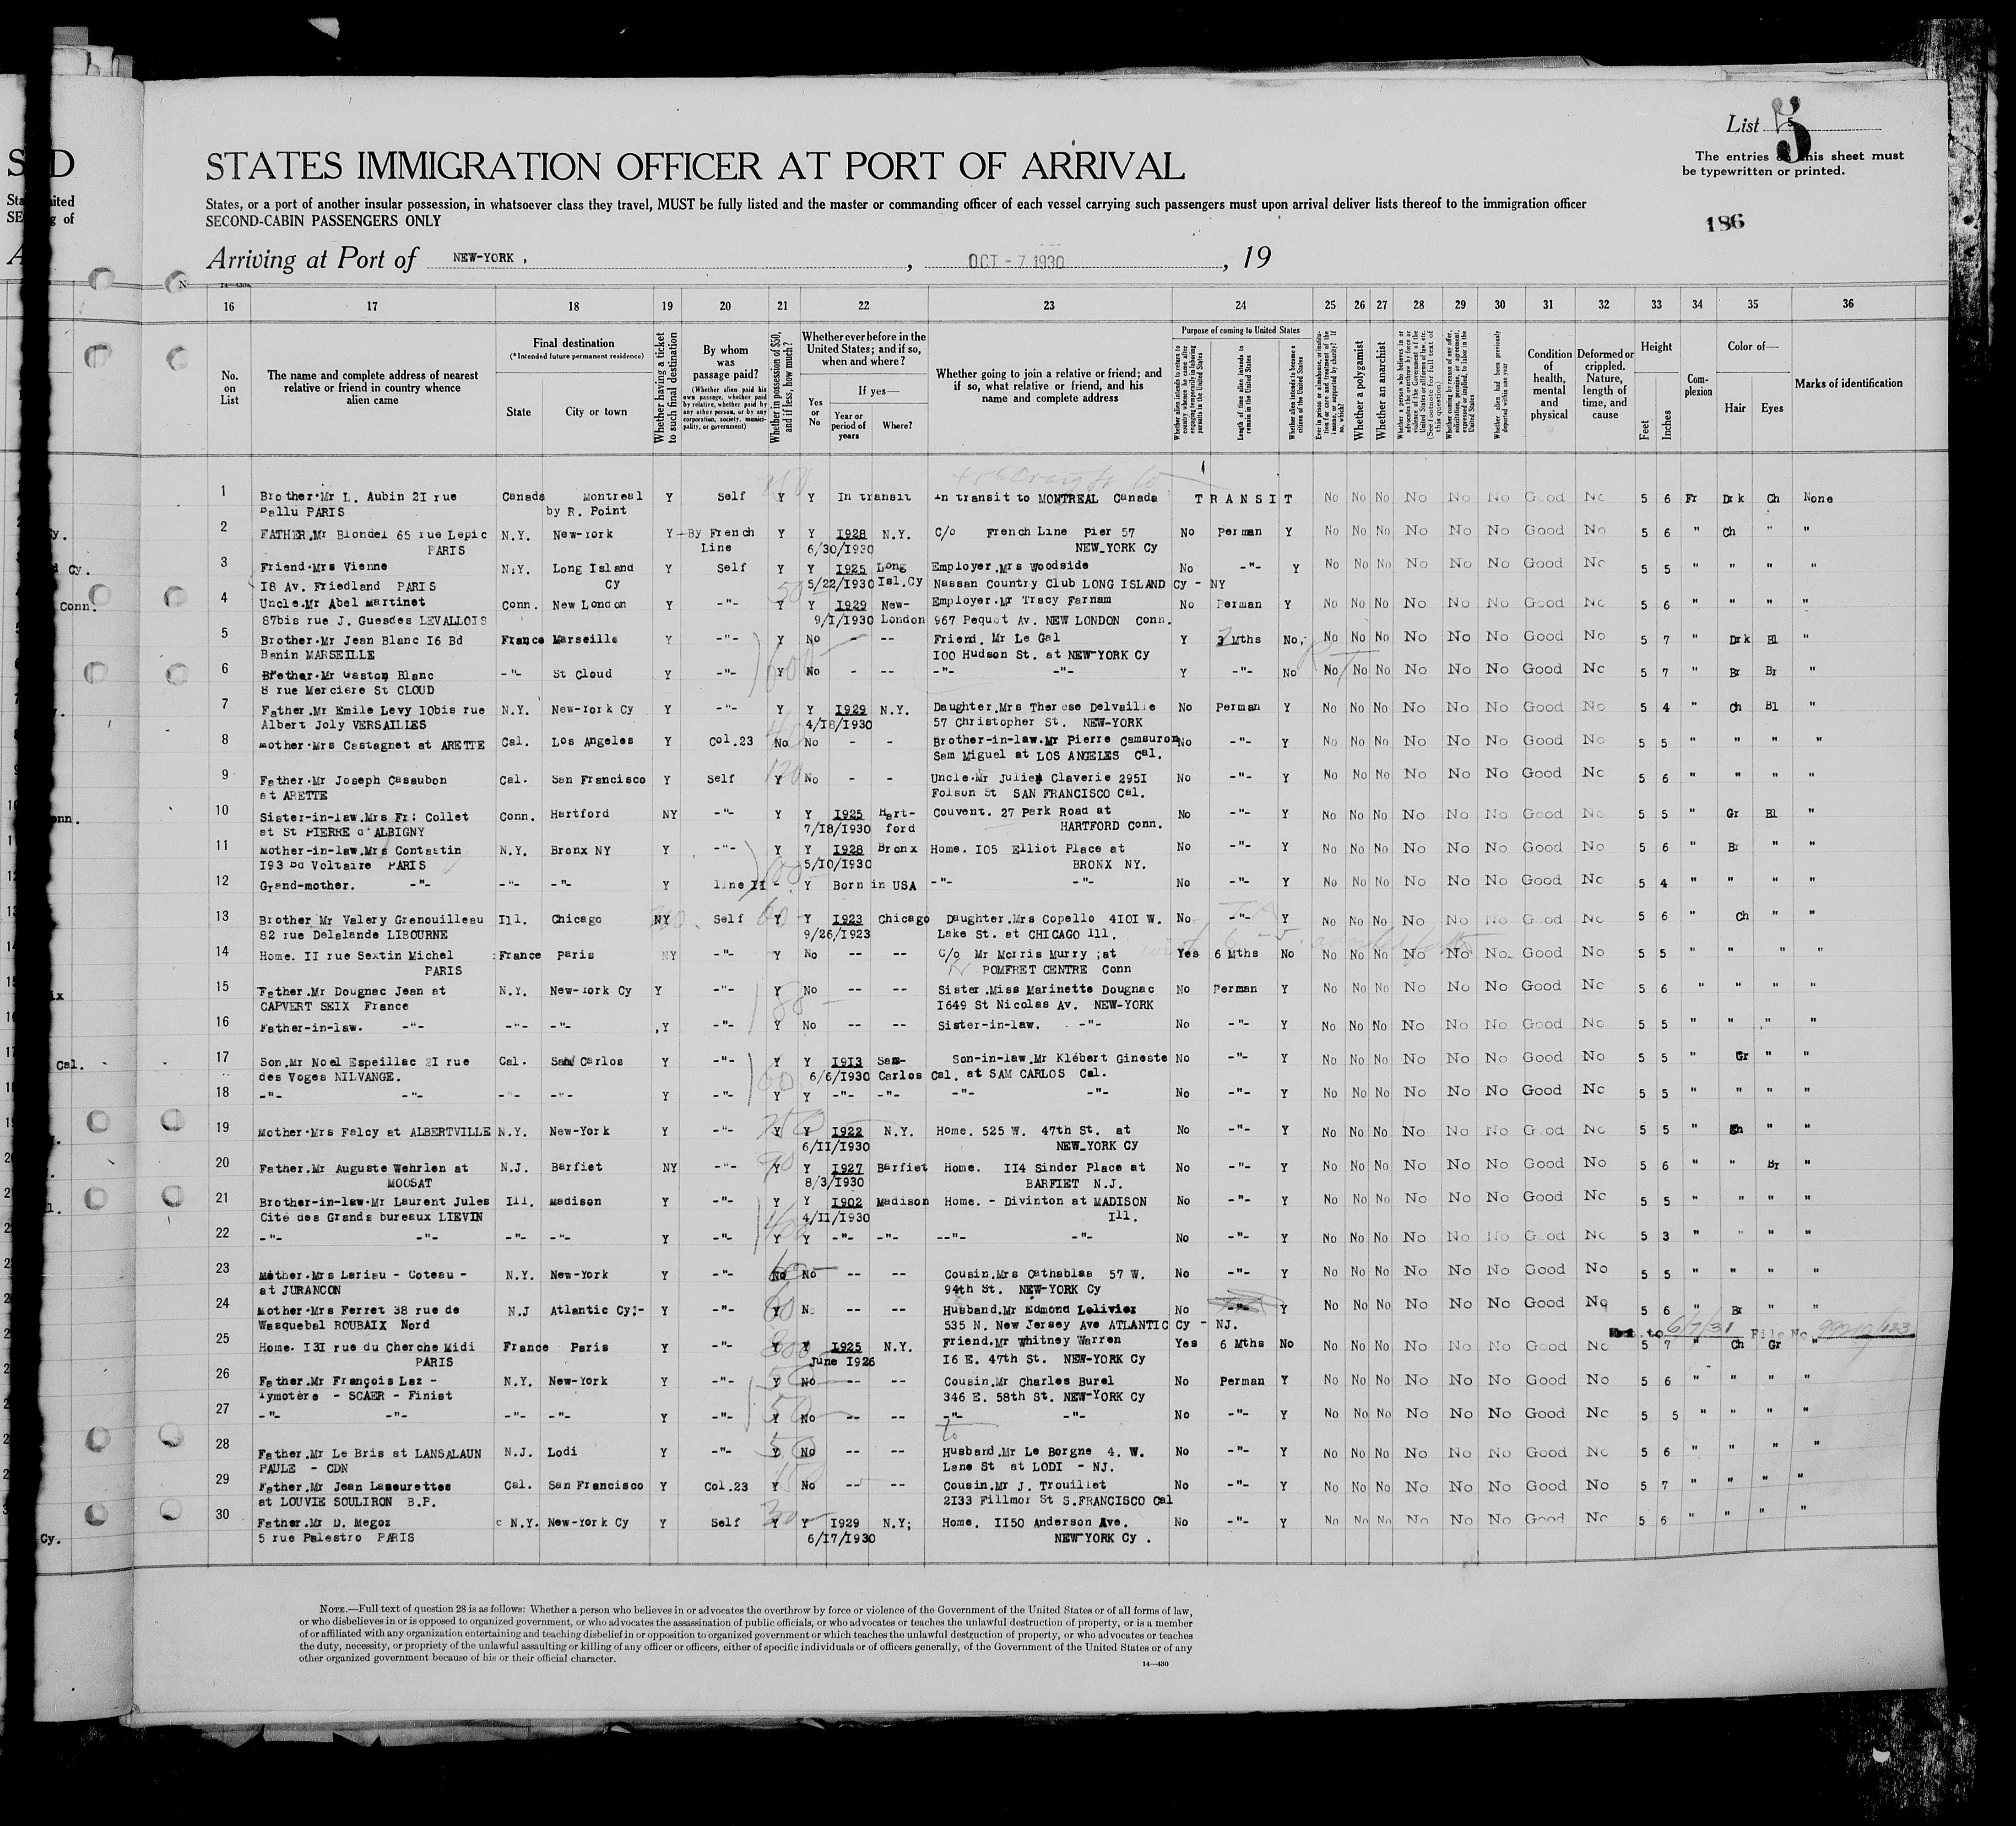 List 5
The entries on this sheet must
be typewritten or printed.
STATES IMMIGRATION OFFICER AT PORT OF ARRIVAL
States, or a port of another insular possession, in whatsoever class they travel, MUST be fully listed and the master or commanding officer of each vessel carrying such passengers must upon arrival deliver lists thereof to the immigration officer
SECOND-CABIN PASSENGERS ONLY
186
Arriving at Port of NEW-YORK , , OCT - 7 1930 , 19
16 17 18 19 20 21 22 23 24 25 26 27 28 29 30 31 32 33 34 35 36
No. on List
The name and complete address of nearest relative or friend in country whence alien came
Final destination
(*Intended future permanent residence)
State City or town
Whether having a ticket to such final destination
By whom was passage paid?
(Whether alien paid his own passage, whether paid by relative, whether paid by any other person, or by any corporation, society, municipality, or government)
Whether in possession of $50, and if less, how much?
Whether ever before in the United States; and if so, when and where?
Yes or No
If yes—
Year or period of years Where?
Whether going to join a relative or friend; and if so, what relative or friend, and his name and complete address
Purpose of coming to United States
Length of time alien intends to remain in the United States
Whether alien intends to become a citizen of the United States
Whether a polygamist
Whether an anarchist
Condition of health, mental and physical
Deformed or crippled. Nature, length of time, and cause
Height
Feet Inches
Complexion
Color of—
Hair Eyes
Marks of identification
1 Brother.Mr L. Aubin 2I rue Canada Montreal Y Self Y Y In transit In transit to MONTREAL Canada T R A N S I T No No No No No No Good No 5 6 Fr Drk Ch None
Pallu PARIS by R. Point
2 FATHER.Mr Blondel 65 rue Lepic N.Y. New-York Y By French Y Y I928 N.Y. C/o French Line Pier 57 No Perman Y No No No No No No Good No 5 6 " Ch " "
PARIS Line 6/30/I930 NEW-YORK Cy
3 Friend.Mrs Vienne N.Y. Long Island Y Self Y Y I925 Long Employer.Mrs Woodside No -"- Y No No No No No No Good No 5 5 " " " "
I8 Av. Friedland PARIS Cy 5/22/I930 Isl.Cy Nassan Country Club LONG ISLAND Cy - NY
4 Uncle.Mr Abel Martinet Conn. New London Y -"- Y Y I929 New- Employer.Mr Tracy Farnam No Perman Y No No No No No No Good No 5 6 " " " "
87bis rue J. Guesdes LEVALLOIS 9/I/I930 London 967 Pequot Av. NEW LONDON Conn.
5 Brother.Mr Jean Blanc I6 Bd France Marseille Y -"- Y No -- Friend. Mr Le Gal Y 3 Mths No. No No No No No No Good No 5 7 " Drk Bl "
Benin MARSEILLE I00 Hudson St. at NEW-YORK Cy
6 Brother.Mr Gaston Blanc -"- St Cloud Y -"- Y No - -- -"- -"- Y -"- No No No No No No No Good No 5 7 " Br Br "
8 rue Merciere St CLOUD
7 Father.Mr Emile Levy I0bis rue N.Y. New-York Cy Y -"- Y Y I929 N.Y. Daughter.Mrs Therese Delvaille No Perman Y No No No No No No Good No 5 4 " Ch Bl "
Albert Joly VERSAILLES 4/I8/I930 57 Christopher St. NEW-YORK
8 Mother.Mrs Castagnet at ARETTE Cal. Los Angeles Y Col.23 No No - - Brother-in-law.Mr Pierre Camsuron No -"- Y No No No No No No Good No 5 5 " " " "
Sam Miguel at LOS ANGELES Cal.
9 Father.Mr Joseph Casaubon Cal. San Francisco Y Self Y No - - Uncle.Mr Julien Claverie 295I No -"- Y No No No No No No Good No 5 6 " " " "
at ARETTE Folson St SAN FRANCISCO Cal.
10 Sister-in-law.Mrs Fr: Collet Conn. Hartford NY -"- Y Y I925 Hart- Couvent. 27 Park Road at No -"- Y No No No No No No Good No 5 5 " Gr Bl "
at St PIERRE d'ALBIGNY 7/I8/I930 ford HARTFORD Conn.
11 Mother-in-law.Mrs Contastin N.Y. Bronx NY Y -"- Y Y I928 Bronx Home. I05 Elliot Place at No -"- Y No No No No No No Good No 5 6 " Br " "
I93 Bd Voltaire PARIS 5/I0/I930 BRONX NY.
12 Grand-mother. -"- -"- -"- Y line II - Y Born in USA -"- -"- No -"- Y No No No No No No Good No 5 4 " " " "
13 Brother Mr Valery Grenouilleau Ill. Chicago NY Self Y Y I923 Chicago Daughter.Mrs Copello 4I0I W. No -"- Y No No No No No No Good No 5 6 " Ch " "
82 rue Delalande LIBOURNE 9/26/I923 Lake St. at CHICAGO Ill.
14 Home. II rue Sextin Michel France Paris NY -"- Y No -- -- C/o Mr Morris Murry ;at Yes 6 Mths No No No No No No No Good No 5 5 " " " "
PARIS POMFRET CENTRE Conn
15 Father.Mr Dougnac Jean at N.Y. New-York Cy Y -"- Y No -- -- Sister.Miss Marinette Dougnac No Perman Y No No No No No No Good No 5 6 " " " "
CAPVERT SEIX France I649 St Nicolas Av. NEW-YORK
16 Father-in-law. -"- -"- -"- Y -"- Y No -- -- Sister-in-law. -"- No -"- Y No No No No No No Good No 5 5 " " " "
17 Son.Mr Noel Espeillac 2I rue Cal. San Carlos Y -"- Y Y I9I3 San- Son-in-law.Mr Klébert Gineste No -"- Y No No No No No No Good No 5 5 " Gr " "
des Voges NILVANGE. 6/6/I930 Carlos Cal. at SAM CARLOS Cal.
18 -"- -"- -"- -"- Y -"- Y Y -"- -"- -"- -"- No -"- Y No No No No No No Good No 5 5 " " " "
19 Mother.Mrs Falcy at ALBERTVILLE N.Y. New-York Y -"- Y Y I922 N.Y. Home. 525 W. 47th St. at No -"- Y No No No No No No Good No 5 5 " Ch " "
6/II/I930 NEW-YORK Cy
20 Father.Mr Auguste Wehrlen at N.J. Barfiet NY -"- Y Y I927 Barfiet Home. II4 Sinder Place at No -"- Y No No No No No No Good No 5 6 " " Br "
MOOSAT 8/3/I930 BARFIET N.J.
21 Brother-in-law.Mr Laurent Jules Ill. Madison Y -"- Y Y I902 Madison Home. - Divinton at MADISON No -"- Y No No No No No No Good No 5 5 " " " "
Cité des Grands bureaux LIEVIN 4/II/I930 Ill.
22 -"- -"- -"- -"- Y -"- Y Y -"- -"- --"- -"- No -"- Y No No No No No No Good No 5 3 " " " "
23 Mother.Mrs Lariau - Coteau - N.Y. New-York Y -"- No No -- -- Cousin.Mrs Cathablas 57 W. No -"- Y No No No No No No Good No 5 5 " " " "
at JURANCON 94th St. NEW-YORK Cy
24 Mother.Mrs Ferret 38 rue de N.J Atlantic Cy:- Y -"- Y No -- -- Husband.Mr Edmond Lelivier No -"- Y No No No No No No Good No 5 6 " Br " "
Wasquebal ROUBAIX Nord 535 N. New Jersey Ave ATLANTIC Cy - NJ.
Ext. to 6/7/31 File No 99210/123
25 Home. I3I rue du Cherche Midi France Paris Y -"- Y Y I925 N.Y. Friend.Mr Whitney Warren Yes 6 Mths No No No No No No No Good No 5 7 " Ch Gr "
PARIS June I926 I6 E. 47th St. NEW-YORK Cy
26 Father.Mr François Laz - N.Y. New-York Y -"- Y No -- -- Cousin.Mr Charles Burel No Perman Y No No No No No No Good No 5 6 " " " "
Tymotère - SCAER - Finist 346 E. 58th St. NEW-YORK Cy
27 -"- -"- -"- -"- Y -"- Y No -- -- -"- -"- No -"- Y No No No No No No Good No 5 5 " " " "
28 Father.Mr Le Bris at LANSALAUN N.J. Lodi Y -"- Y No -- -- Husband.Mr Le Borgne 4. W. No -"- Y No No No No No No Good No 5 6 " " " "
PAULE - CDN Lane St at LODI - NJ.
29 Father.Mr Jean Laseurettes Cal. San Francisco Y Col.23 Y No -- -- Cousin.Mr J. Trouillet No -"- Y No No No No No No Good No 5 7 " " " "
at LOUVIE SOULIRON B.P. 2I33 Fillmor St S.FRANCISCO Cal
30 Father.Mr D. Megoz N.Y. New-York Cy Y Self Y Y I929 N.Y; Home. II50 Anderson Ave. No -"- Y No No No No No No Good No 5 6 " " " "
5 rue Palestro PARIS 6/I7/I930 NEW-YORK Cy .
NOTE.—Full text of question 28 is as follows: Whether a person who believes in or advocates the overthrow by force or violence of the Government of the United States or of all forms of law,
or who disbelieves in or is opposed to organized government, or who advocates the assassination of public officials, or who advocates or teaches the unlawful destruction of property, or is a member
of or affiliated with any organization entertaining and teaching disbelief in or opposition to organized government or which teaches the unlawful destruction of property, or who advocates or teaches
the duty, necessity, or propriety of the unlawful assaulting or killing of any officer or officers, either of specific individuals or of officers generally, of the Government of the United States or of any
other organized government because of his or their official character.
14—430